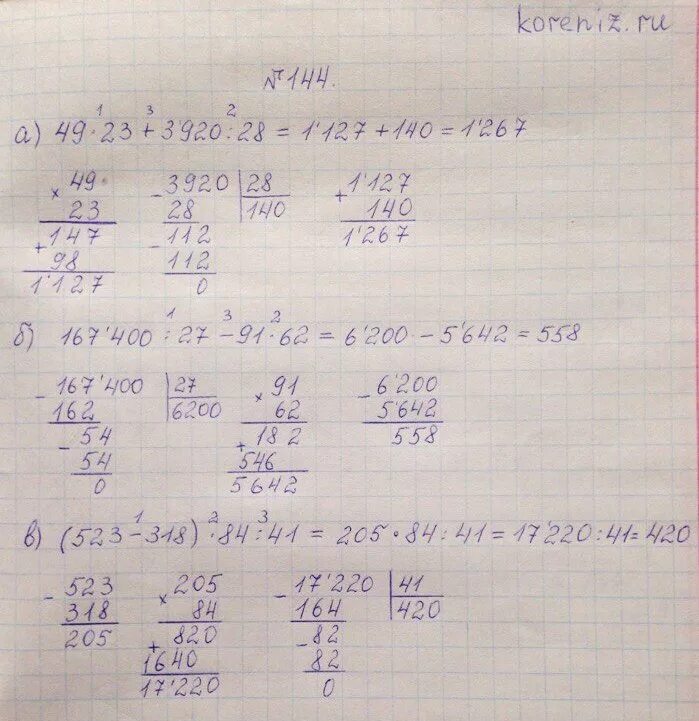 koreniz.ru
№144.
1 3 2
а) 49·23+3'920:28=1'127+140=1'267
× 49 - 3920 |28 + 1'127
23 28 140 140
+ 147 - 112 1'267
98 112
1'127 0
1 3 2
б) 167'400:27-91·62=6'200-5'642=558
- 167'400 |27 × 91 - 6'200
162 6200 62 5'642
- 54 + 182 558
54 546
0 5642
1 2 3
в) (523-318)·84:41=205·84:41=17'220:41=420
- 523 × 205 - 17'220 |41
318 84 164 420
205 + 820 - 82
1640 82
17'220 0